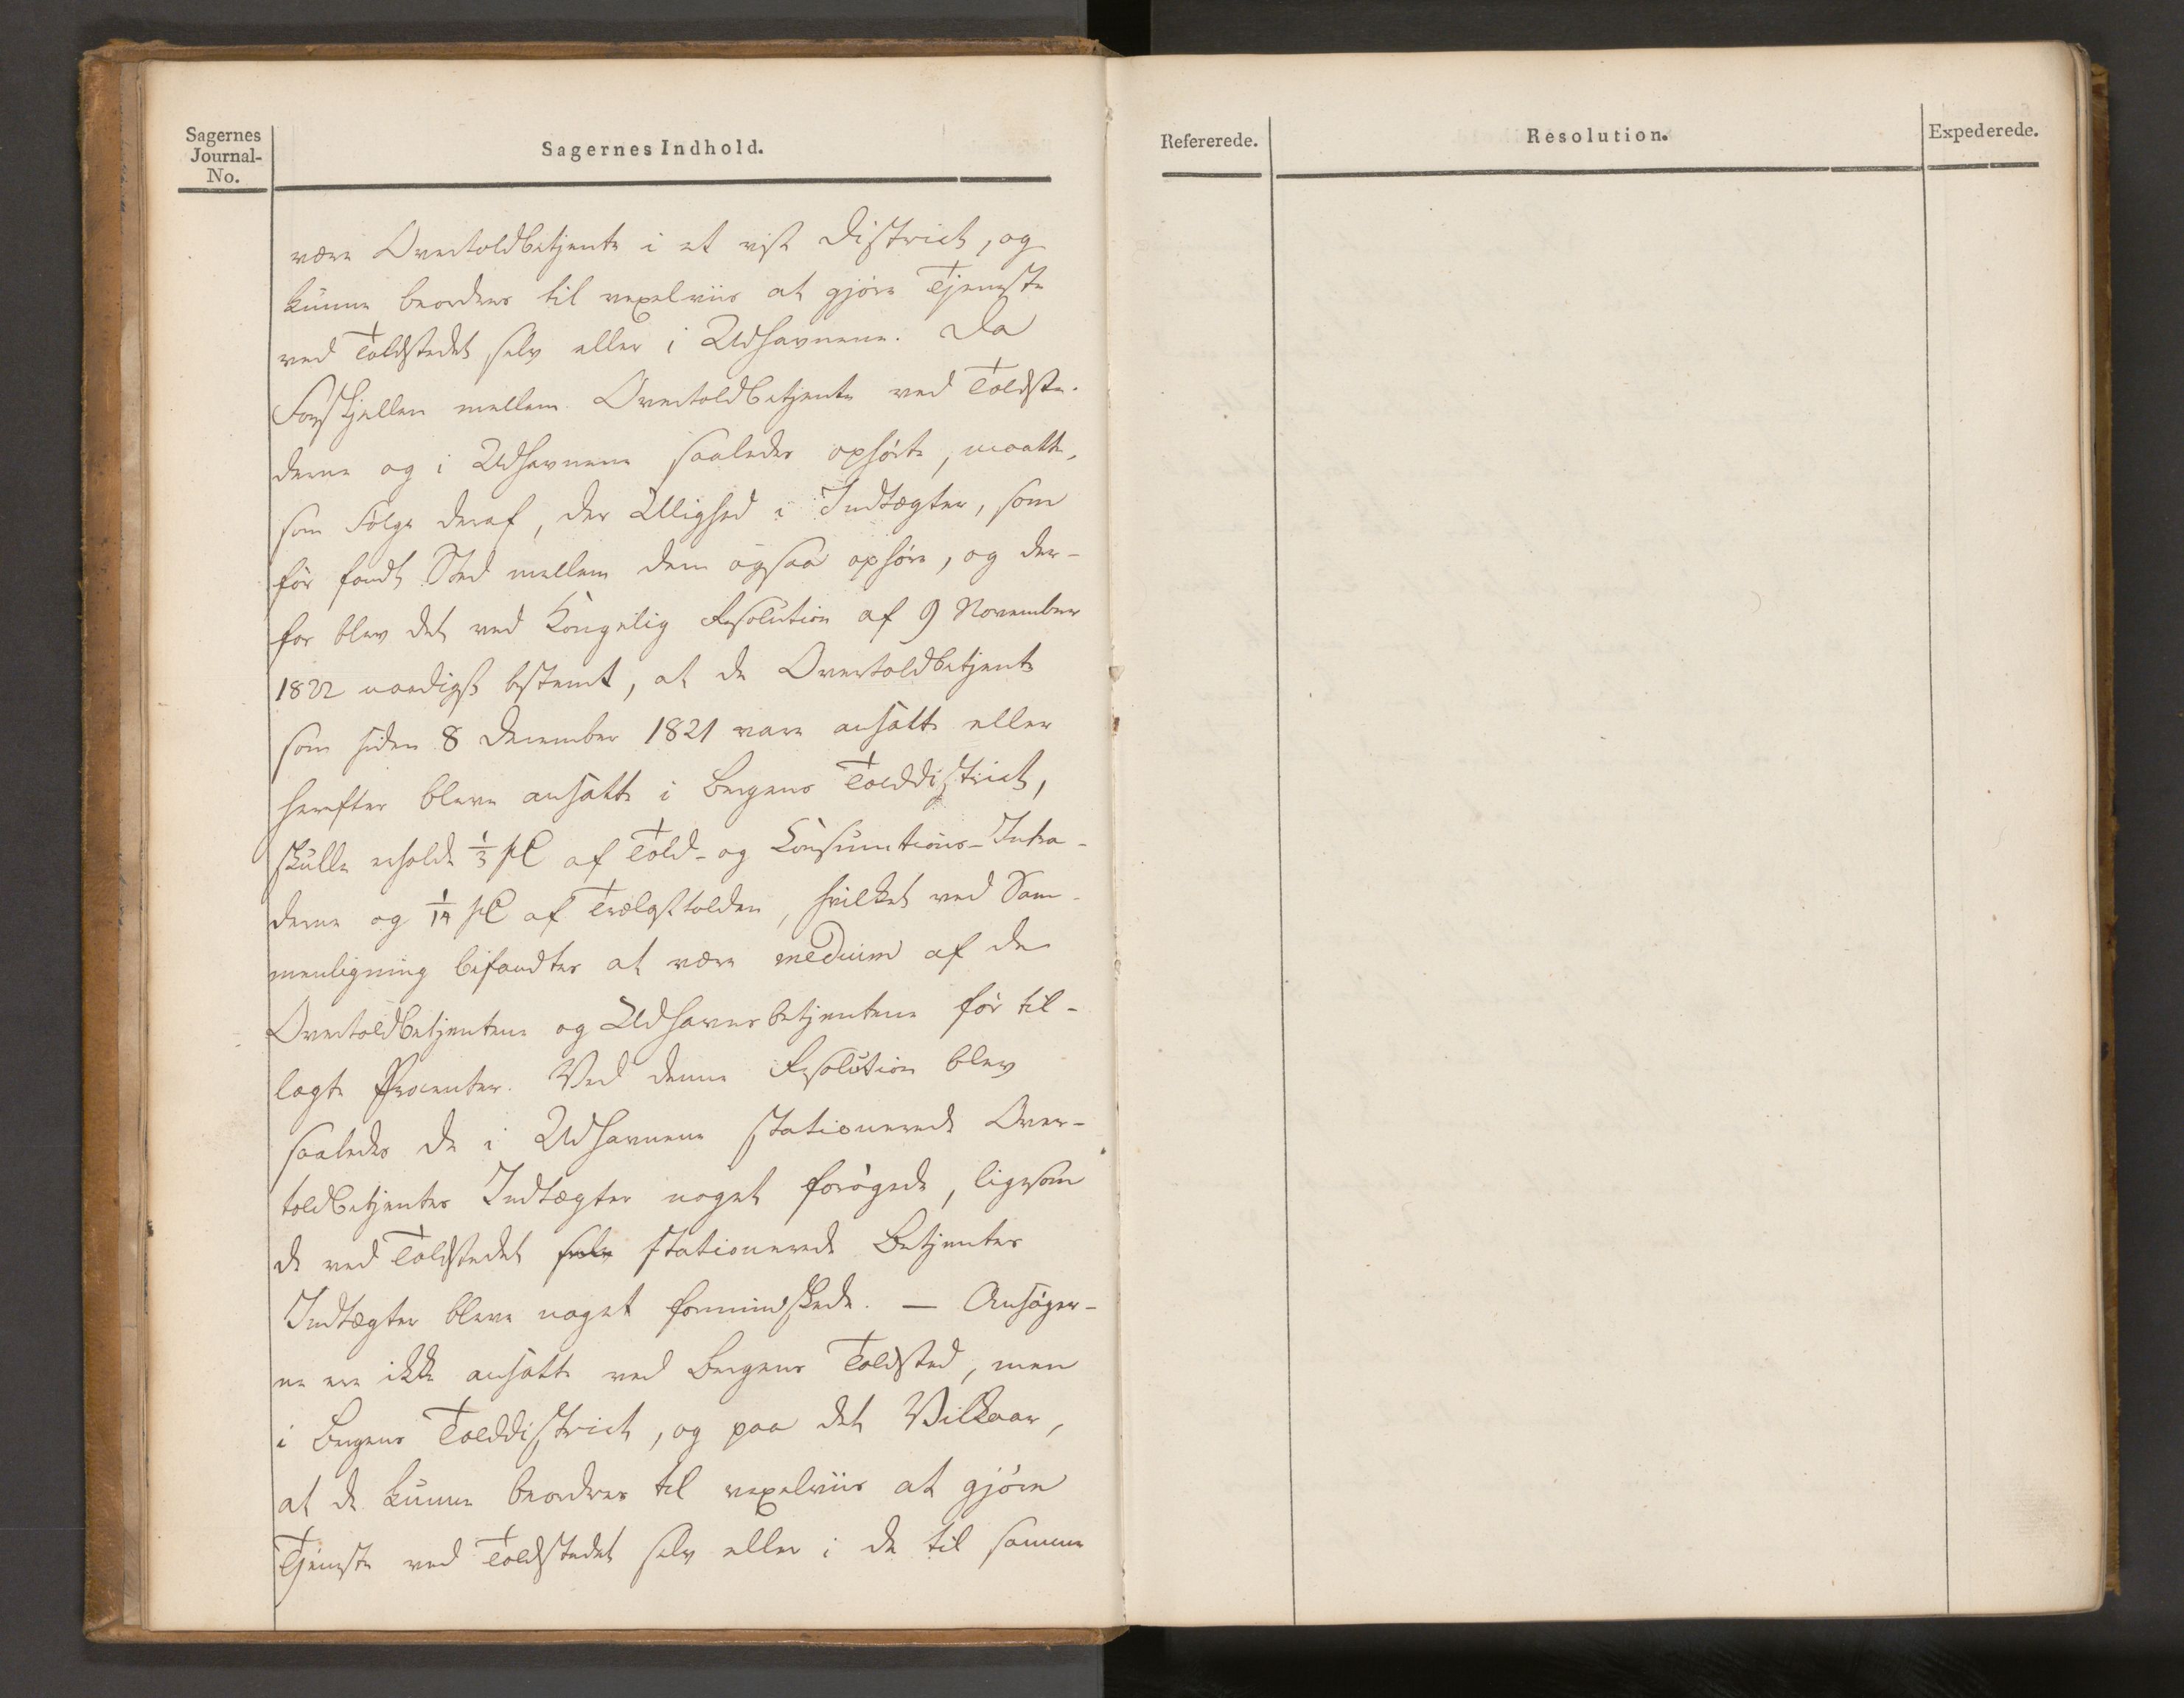 Sagernes
Journal-
No.
Sagernes Indhold.
være Overtoldbetjente i et vist District, og
kunne beordres til vexelviis at gjøre Tjeneste
ved Toldstedet selv eller i Udhavnene. Da
Forskjellen mellem Overtoldbetjente ved Toldste-
derne og i Udhavnene saaledes ophørte, maatte,
som Følge deraf, den Ulighed i Indtægter, som
før fandt Sted mellem dem ogsaa ophøre, og der-
for blev det ved Kongelig Resolution af 9 November
1822 naadigst bestemt, at de Overtoldbetjente
som siden 8 December 1821 vare ansatte eller
herefter bleve ansatte i Bergens Tolddistrict,
skulle erholde 1/3 pC af Told- og Consumtions-Intra-
derne og 1/14 pC af Trælasttolden, hvilket ved Sam-
menligning befandtes at være medium af de
Overtoldbetjentene og Udhavnsbetjentene før til-
lagte Procenter. Ved denne Resolution blev
saaledes de i Udhavnene stationerede Over-
toldbetjentes Indtægter noget forøgede, ligesom
de ved Toldstedet selv stationerede Betjentes
Indtægter bleve noget formindskede. — Ansøger-
ne ere ikke ansatte ved Bergens Toldsted, men
i Bergens Tolddistrict, og paa det Vilkaar,
at de kunne beordres til vexelviis at gjøre
Tjeneste ved Toldstedet selv eller i de til samme
Refererede.
Resolution.
Expederede.